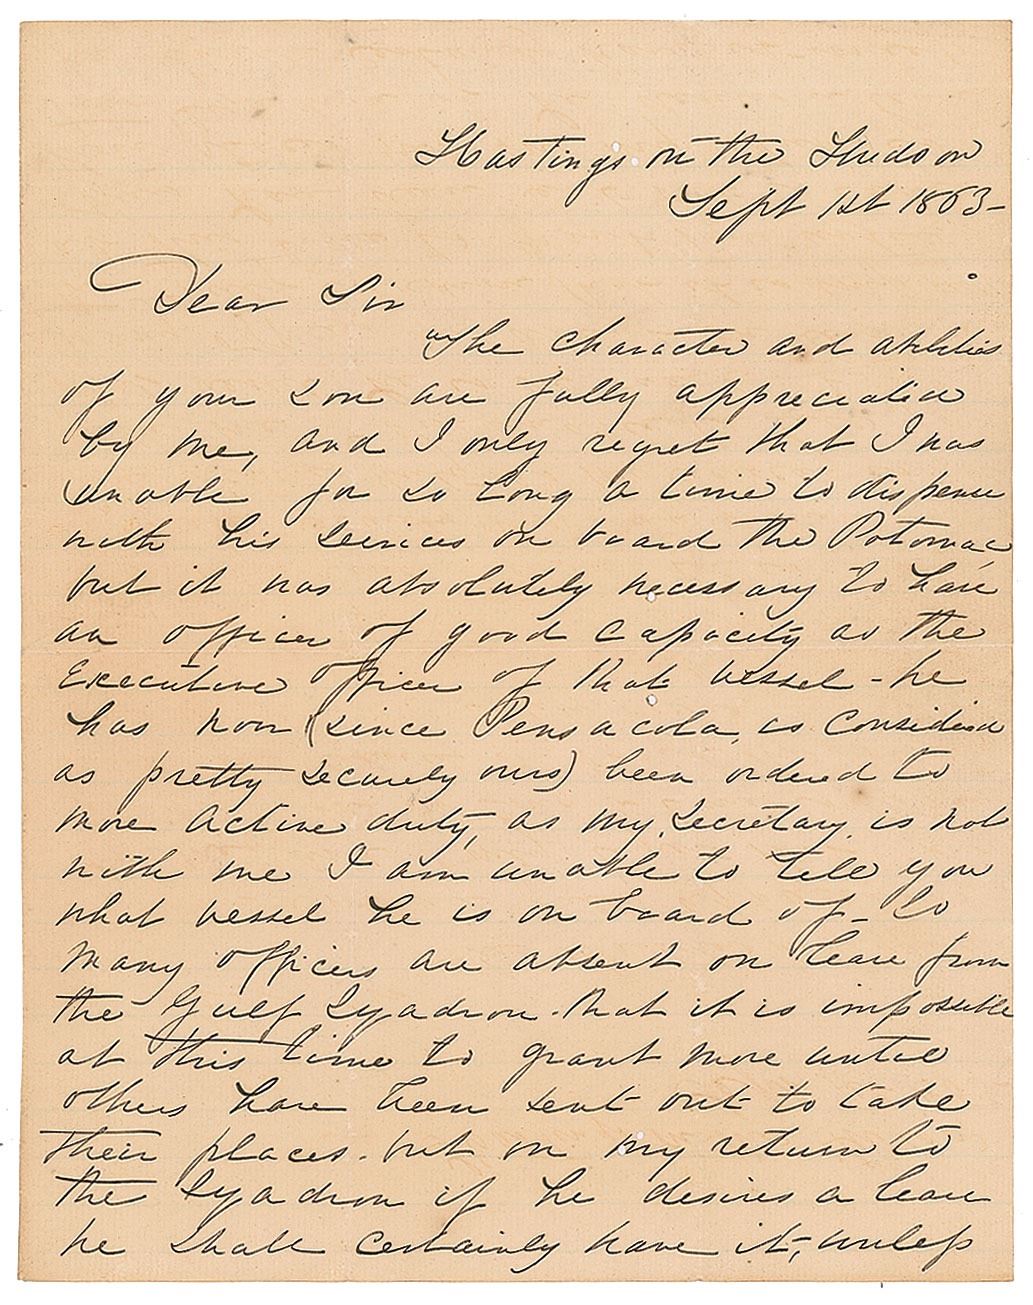 Hastings on the Hudson
Sept 1st 1863-
Dear Sir
The character and abilities
of your son are fully appreciated
by me, and I only regret that I was
unable for so long a time to dispense
with his services on board the Potomac
but it was absolutely necessary to have
an officer of good capacity as the
Executive officer of that vessel - he
has now (since Pensacola, is considered
as pretty securely ours) been ordered to
more active duty, as my Secretary is not
with me I am unable to tell you
what vessel he is on board of - So
many officers are absent on leave from
the Gulf Sqadron. that it is impossible
at this time to grant more until
others have been sent out to take
their places. but on my return to
the Sqadron if he desires a leave
he shall certainly have it, unless